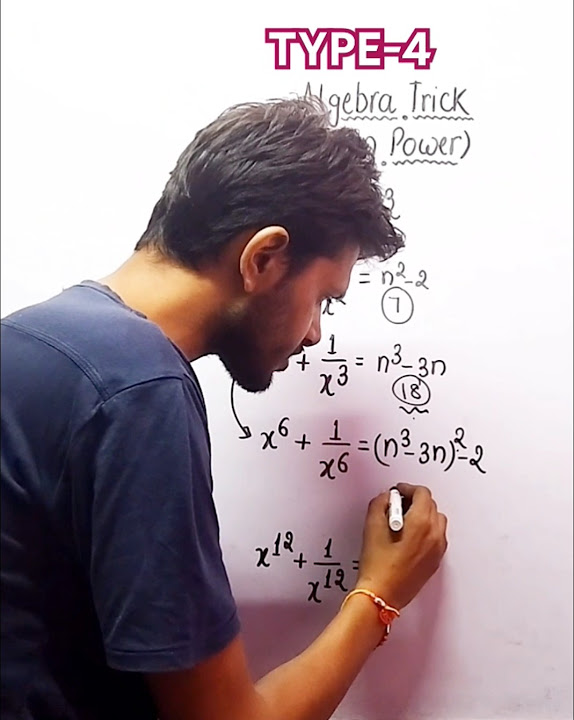 TYPE-4
Algebra Trick
Power)
= n²-2
7
+ 1/x³ = n³-3n
18
x⁶ + 1/x⁶ = (n³-3n)²-2
x¹² + 1/x¹² =